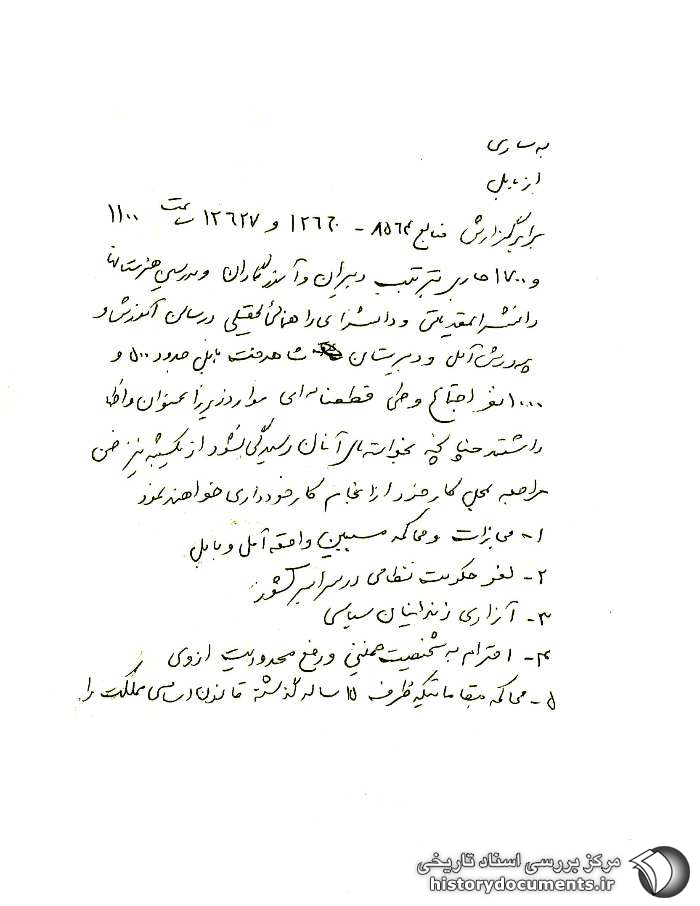 به ساری
از بابل
برابر گزارش منابع ۸۵۶۴ - ۱۲۶۶۰ و ۱۲۶۲۷ ساعت ۱۱۰۰
و ۱۷۰۰ جاری بترتیب دبیران و آموزگاران و مدرسین هنرستانها
دانشسرا مقدماتی و دانشسرای راهنمائی تحصیلی در سالن آموزش و
پرورش آمل و دبیرستان شاهدخت بابل حدود ۵۰۰ و
۱۰۰۰ نفر اجتماع و طی قطعنامه‌ای موارد زیر را عنوان و اظهار
داشتند چنانچه بخواسته‌های آنان رسیدگی نشود از یکشنبه نیز ضمن
مراجعه بمحل کار خود از انجام کار خودداری خواهند نمود
۱- مجازات و محاکمه مسببین واقعه آمل و بابل
۲- لغو حکومت نظامی در سراسر کشور
۳- آزادی زندانیان سیاسی
۴- احترام به شخصیت خمینی و رفع محدودیت از وی
۵- محاکمه مقاماتیکه ظرف ۱۵ ساله گذشته قانون اساسی مملکت را
مرکز بررسی اسناد تاریخی
historydocuments.ir